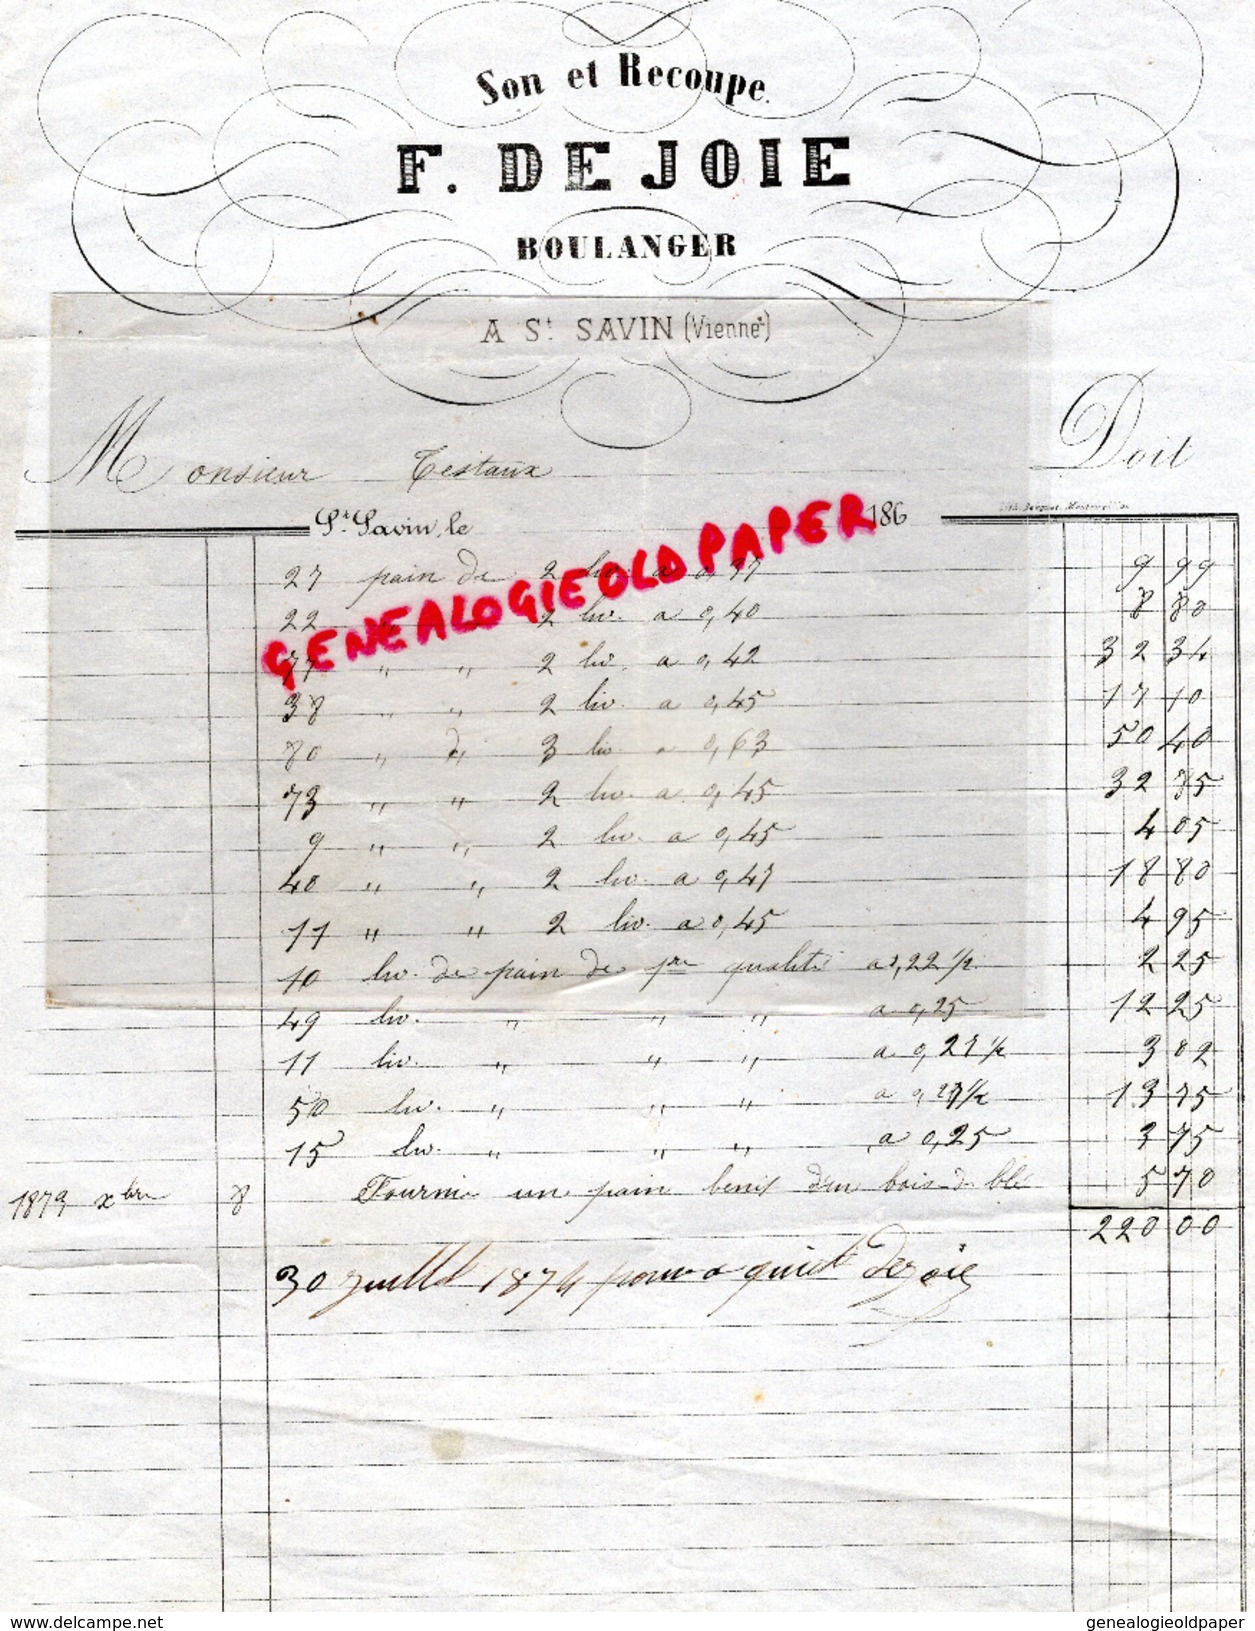 Son et Recoupe.
F. DEJOIE
BOULANGER
A St. SAVIN (Vienne)
Monsieur Testaux Doit
St. Savin, le 186
27 pain de 2 liv. a 0,37 9 99
22 " 2 liv. a 0,40 8 80
77 " " 2 liv. a 0,42 32 34
38 " " 2 liv. a 0,45 17 10
80 " d, 3 liv. a 0,63 50 40
73 " " 2 liv. a 0,45 32 85
9 " " 2 liv. a 0,45 4 05
40 " " 2 liv. a 0,47 18 80
11 " " 2 liv. a 0,45 4 95
10 liv. de pain de 1re qualité a 0,22 1/2 2 25
49 liv. " " " a 0,25 12 25
11 liv. " " " a 0,27 1/2 3 02
50 liv. " " " a 0,27 1/2 13 75
15 liv. " " " a 0,25 3 75
1873 xbre 8 Fourni un pain benit d'un bois. d. blé 5 70
220 00
30 juillet 1874 pour aquit Dejoie
GENEALOGIEOLD PAPER
www.delcampe.net
genealogieoldpaper